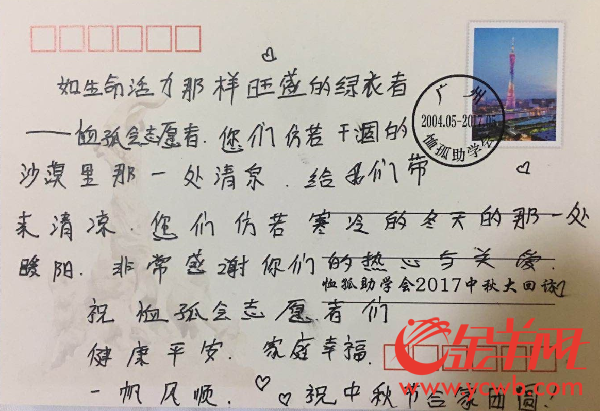 如生命活力那样旺盛的绿衣者
——恤孤会志愿者.您们仿若干涸的
沙漠里那一处清泉.给我们带
来清凉.您们仿若寒冷的冬天的那一处
暖阳.非常感谢你们的热心与关爱.
祝恤孤会志愿者们
健康平安.家庭幸福.
一帆风顺.祝中秋节合家团圆.
广州
2004.05-2017.05
恤孤助学会
恤孤助学会2017中秋大回访
金羊网
www.ycwb.com